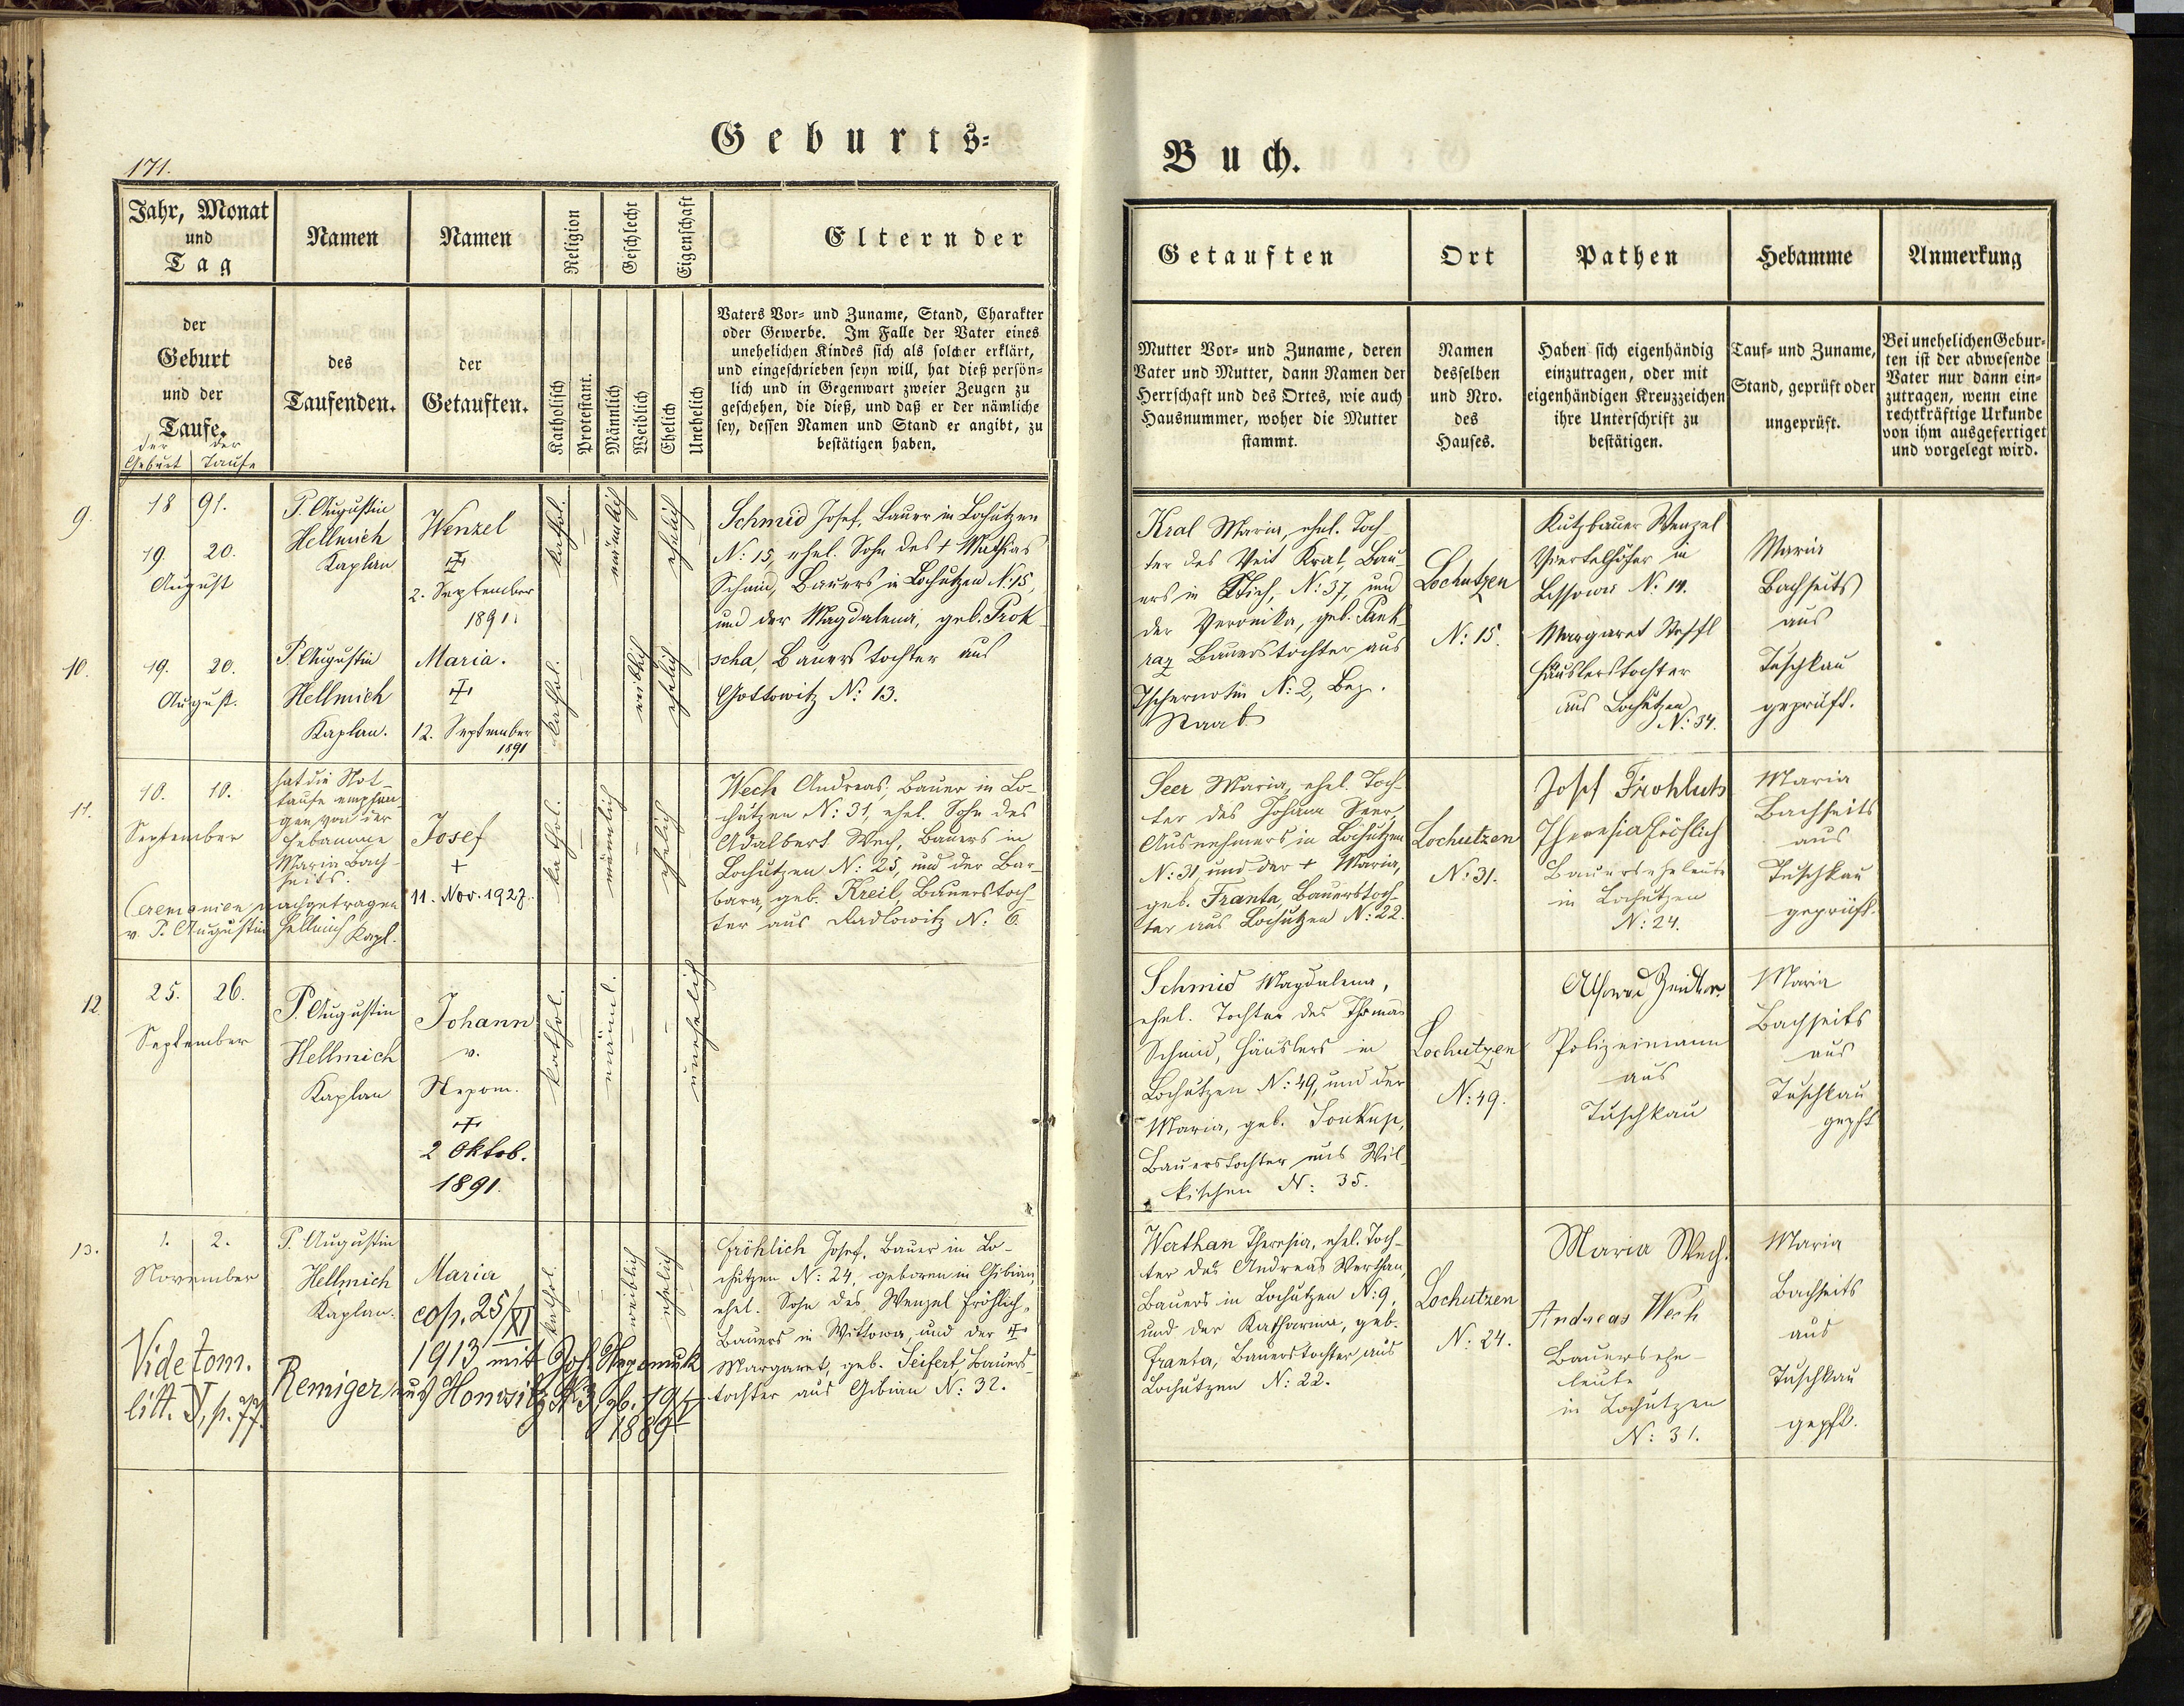 Geburts-
Buch.
171.
Jahr, Monat
und
Tag
Namen
Namen
Religion
Geschlecht
Eigenschaft
Eltern der
der
Geburt
und der
Taufe.
der der
Geburt Taufe
des
Taufenden.
der
Getauften.
Katholisch
Protestant.
Männlich
Weiblich
Ehelich
Unehelich
Vaters Vor- und Zuname, Stand, Charakter
oder Gewerbe. Im Falle der Vater eines
unehelichen Kindes sich als solcher erklärt,
und eingeschrieben seyn will, hat dieß persön-
lich und in Gegenwart zweier Zeugen zu
geschehen, die dieß, und daß er der nämliche
sey, dessen Namen und Stand er angibt, zu
bestätigen haben.
Getauften
Ort
Pathen
Hebamme
Anmerkung
Mutter Vor- und Zuname, deren
Vater und Mutter, dann Namen der
Herrschaft und des Ortes, wie auch
Hausnummer, woher die Mutter
stammt.
Namen
desselben
und Nro.
des
Hauses.
Haben sich eigenhändig
einzutragen, oder mit
eigenhändigen Kreuzzeichen
ihre Unterschrift zu
bestätigen.
Tauf- und Zuname,
Stand, geprüft oder
ungeprüft.
Bei unehelichen Gebur-
ten ist der abwesende
Vater nur dann ein-
zutragen, wenn eine
rechtkräftige Urkunde
von ihm ausgefertiget
und vorgelegt wird.
9.
18 91.
19. 20.
August
P. Augustin
Hellmich
Kaplan
Wenzel
✝
2. September
1891.
kathol.
männlich
ehelich
Schmid Josef, Bauer in Lochutzen
N: 15, ehel. Sohn des + Mathias
Schmid, Bauers in Lochutzen N: 15,
und der Magdalena, geb. Prok-
scha, Bauerstochter aus
Gottowitz N: 13.
Kral Maria, ehel. Toch-
ter des Veit Kral, Bau-
ers in Stich, N: 37, und
der Veronika, geb. Pank-
raz Bauerstochter aus
Tschernotin N: 2, Bez.
Staab
Lochutzen
N: 15.
Kutzbauer Wenzel
Viertelhöfer in
Lissowa N. 14.
Margaret Steffl
Häuslerstochter
aus Lochutzen
N: 34.
Maria
Bachheits
aus
Tuschkau
geprüft.
10.
19. 20.
August.
P. Augustin
Hellmich
Kaplan.
Maria.
✝
12. September
1891
kathol.
weiblich
ehelich
11.
10. 10.
September
hat die Not-
taufe empfan-
gen von der
Hebamme
Maria Bach-
heits.
Ceremonien nachgetragen
v. P. Augustin Hellmich Kapl.
Josef
+
11. Nov. 1927.
kathol.
männlich
ehelich
Wech Andreas, Bauer in Lo-
chutzen N: 31, ehel. Sohn des
Adalbert Wech, Bauers in
Lochutzen N: 25, und der Bar-
bara, geb. Kreil, Bauerstoch-
ter aus Radlowitz N: 6.
Seer Maria, ehel. Toch-
ter des Johann Seer,
Ausnehmers in Lochutzen
N: 31 und der + Maria,
geb. Franta, Bauerstoch-
ter aus Lochutzen N: 22.
Lochutzen
N: 31.
Josef
Theresia Fröhlich
Bauerseheleute
in Lochutzen
N: 24.
Maria
Bachheits
aus
Tuschkau
geprüft.
12.
25. 26.
September
P. Augustin
Hellmich
Kaplan
Johann
v.
Nepom.
✝
2 Oktob.
1891.
kathol.
männl.
unehelich
Schmid Magdalena,
ehel. Tochter des Thomas
Schmid, Häuslers in
Lochutzen N: 49, und der
Maria, geb. Soukup,
Bauerstochter aus Wil-
kischen N: 35.
Lochutzen
N: 49.
Polizeimann
aus
Tuschkau
Maria
Bachheits
aus
Tuschkau
gepft
13.
1. 2.
November
P. Augustin
Hellmich
Kaplan.
Maria
cop. 25/XI
1913 mit Joh. Nepomuk
Remiger aus Honositz N. 3 gb. 19/V
1889
Vide tom.
litt. V, p. 77.
kathol.
weiblich
ehelich
Fröhlich Josef, Bauer in Lo-
chutzen N: 24, geboren in Gibian,
ehel. Sohn des Wenzel Fröhlich,
Bauers in Wittowa, und der ✝
Margaret, geb. Seifert, Bauers-
tochter aus Gibian N: 32.
Werthan Theresia, ehel. Toch-
ter des Andreas Werthan,
Bauers in Lochutzen N: 9,
und der Katharina, geb.
Franta, Bauerstochter aus
Lochutzen N: 22.
Lochutzen
N: 24.
Maria Wech.
Andreas Wech
Bauersehe-
leute
in Lochutzen
N: 31.
Maria
Bachheits
aus
Tuschkau
gepft.